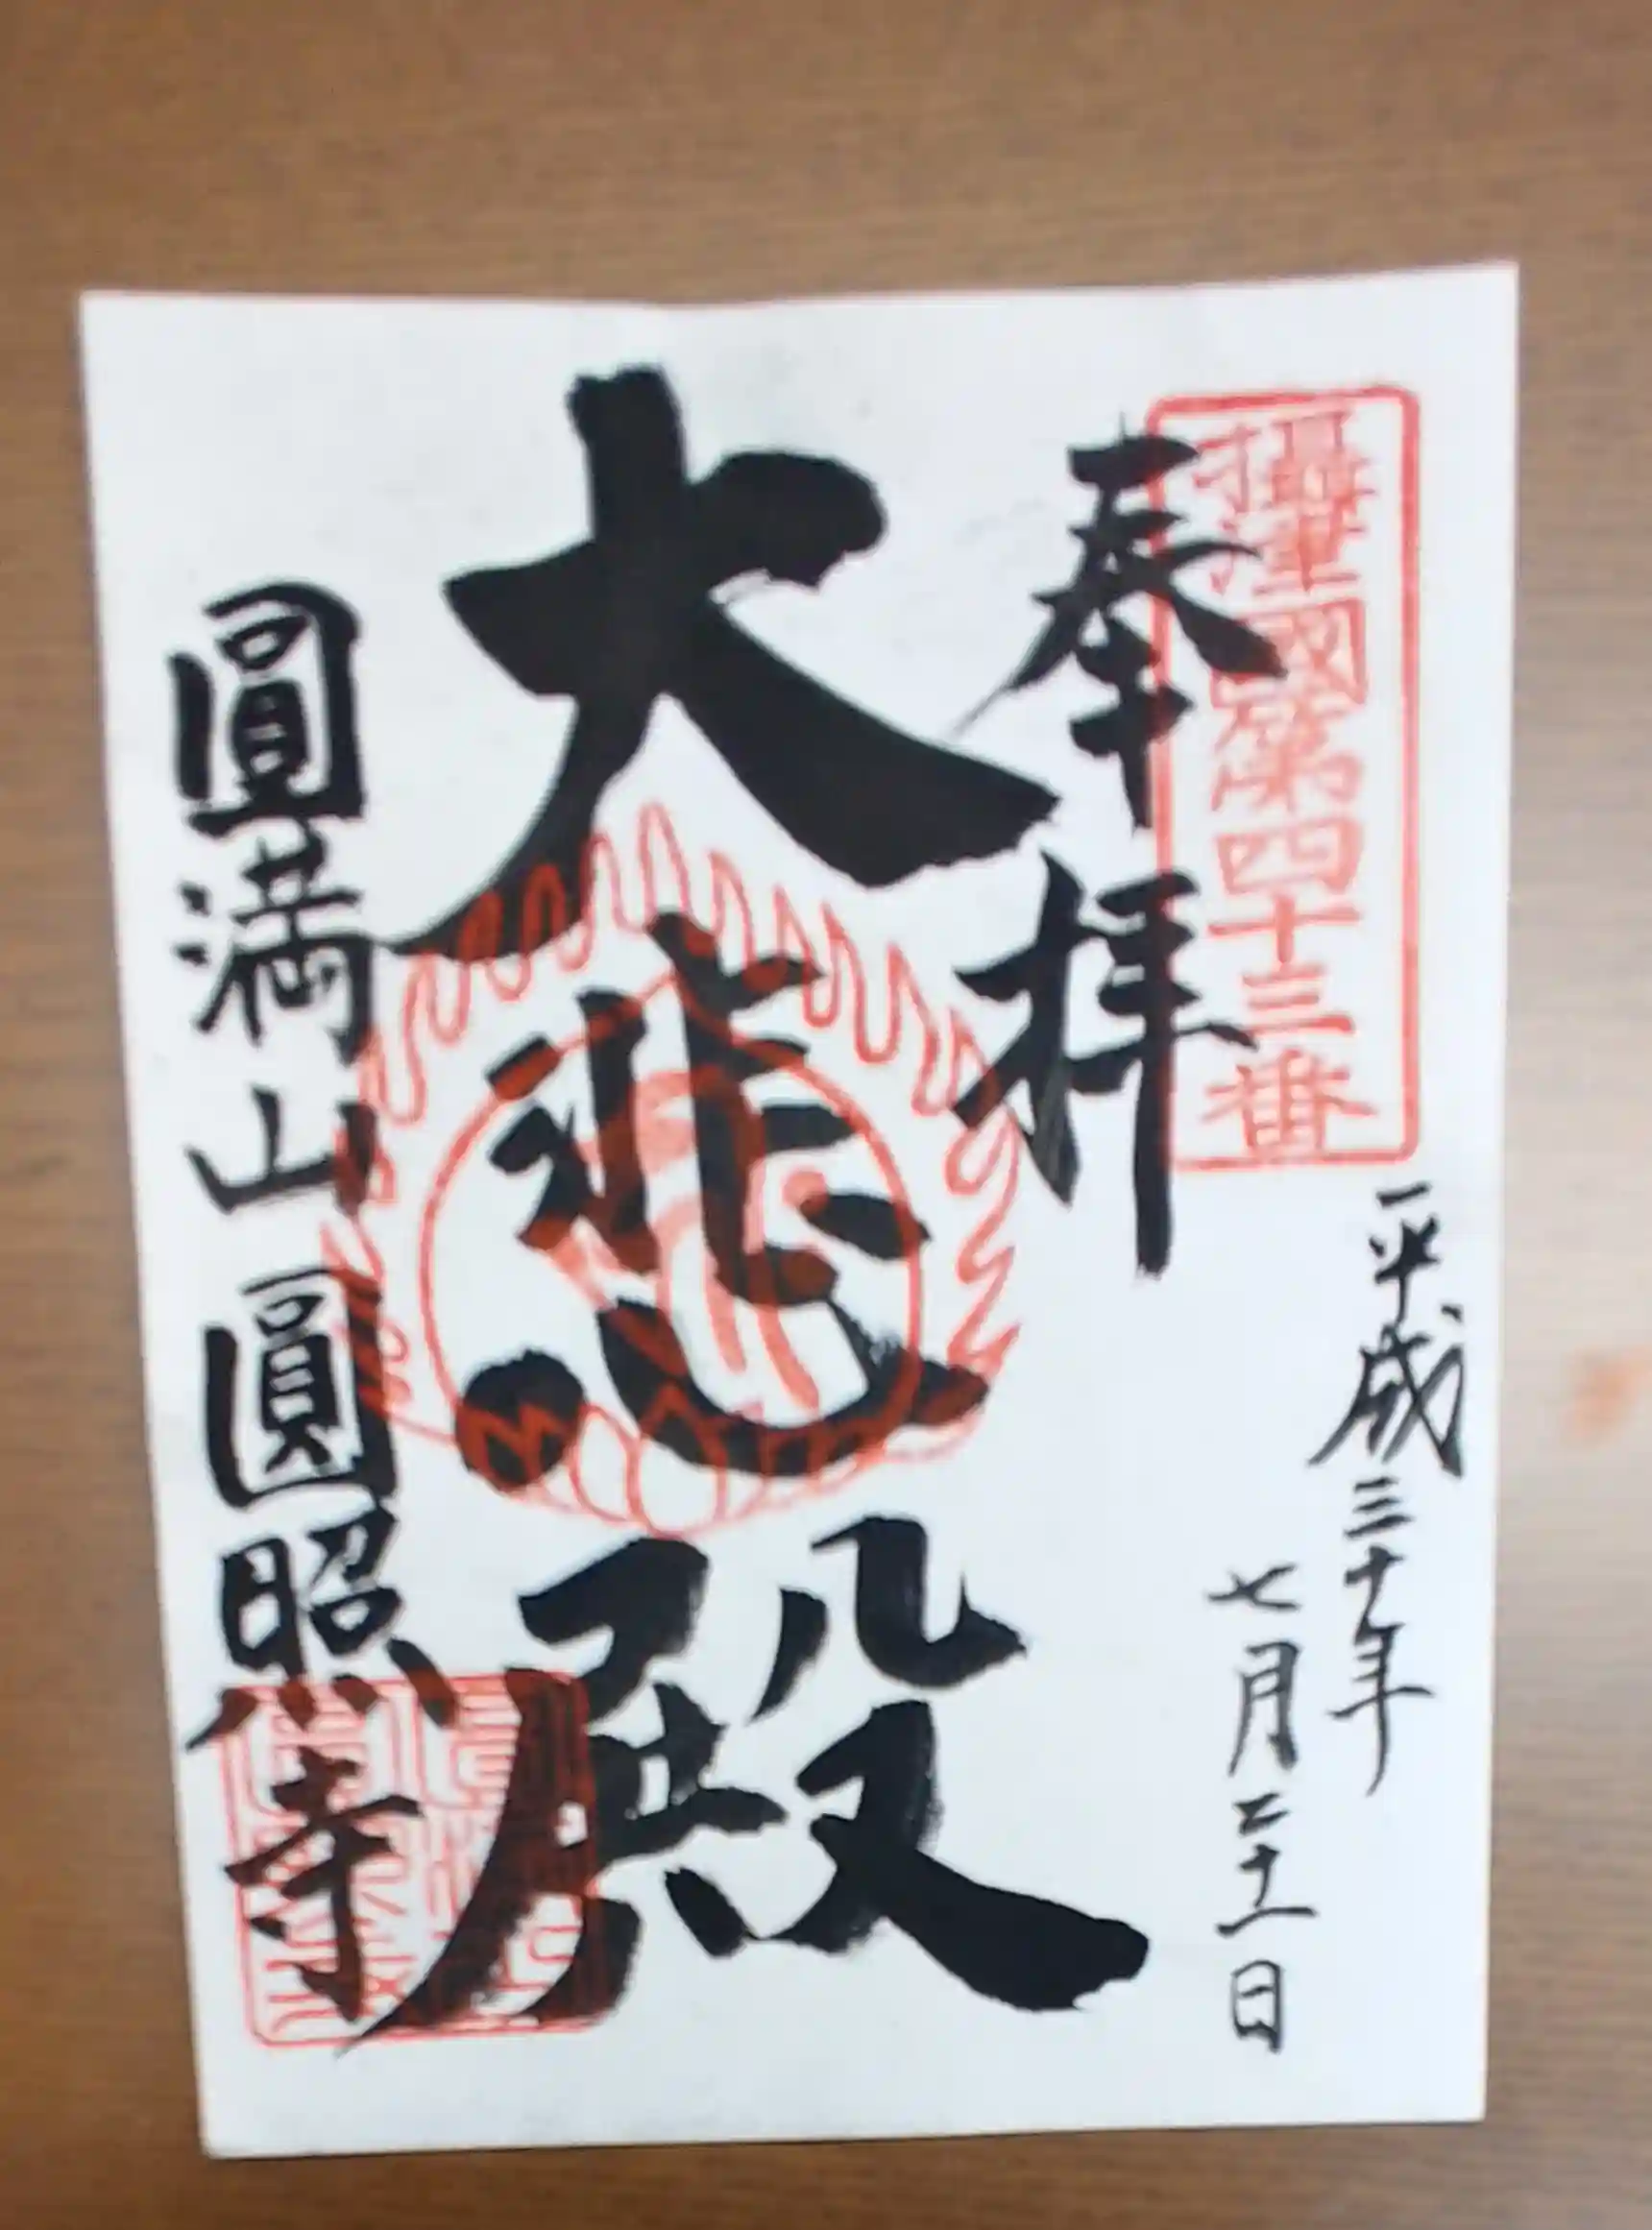 攝津國第四十三番
奉拝
平成三十年
七月二十一日
大悲殿
圓満山圓照寺